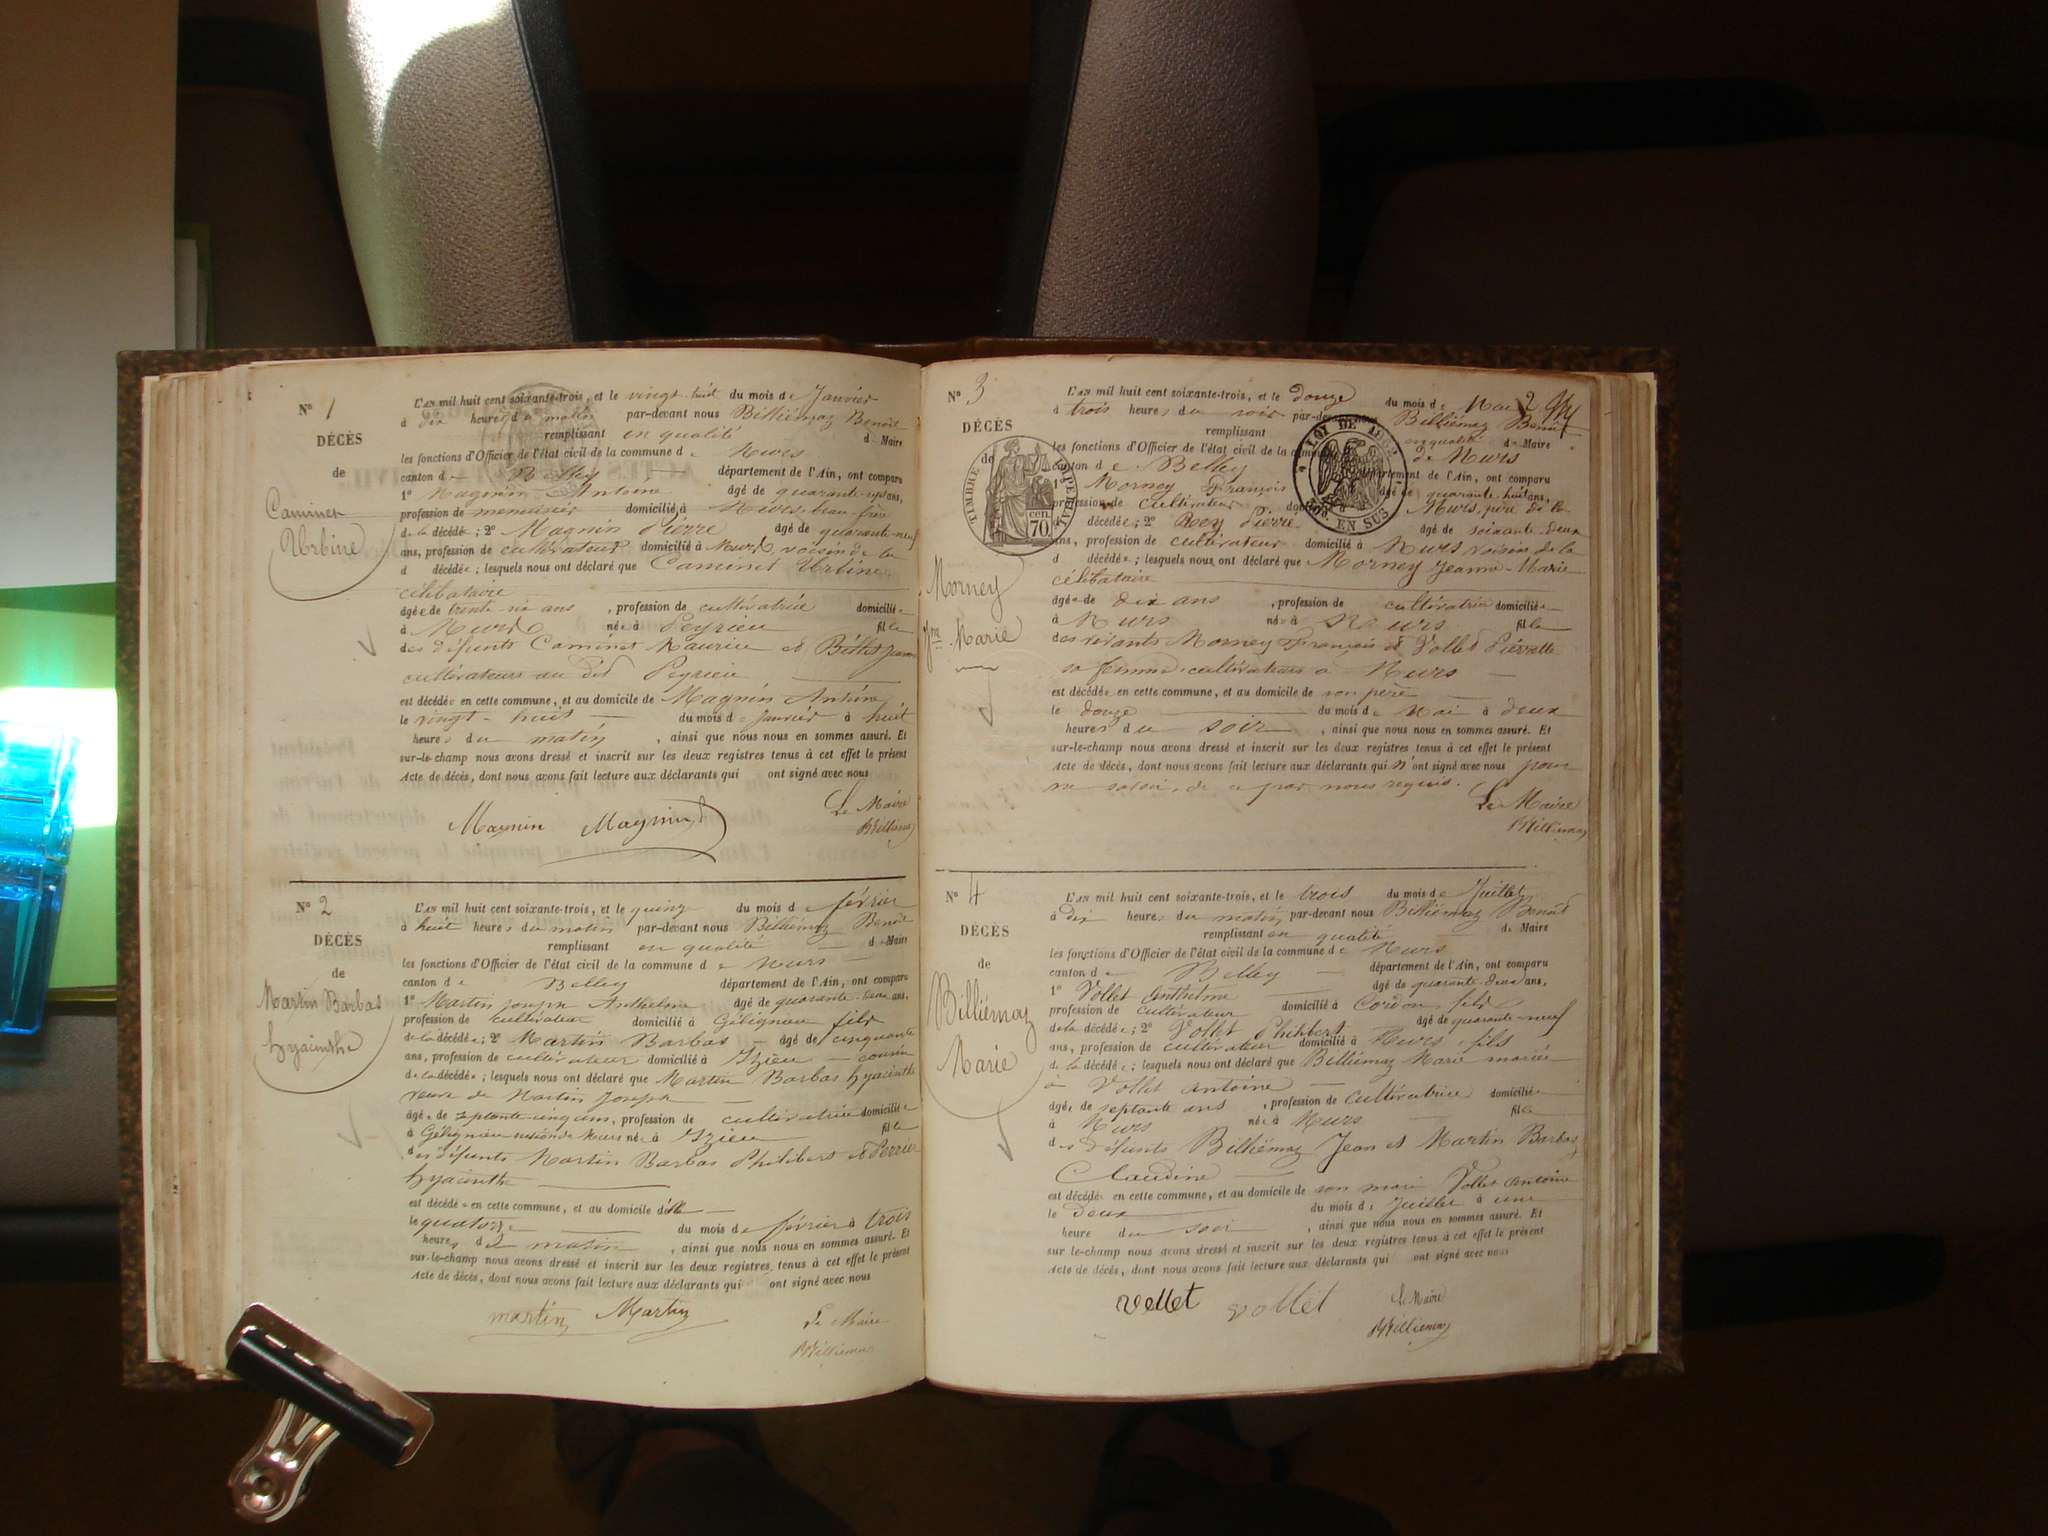 N° 1
DÉCÈS
de
Caminet
Urbine
L'AN mil huit cent soixante-trois, et le vingt-huit du mois de Janvier
à dix heures du matin par-devant nous Billiémaz Benoît
remplissant en qualité de Maire
les fonctions d'Officier de l'état civil de la commune de Murs
canton de Belley département de l'Ain, ont comparu
1° Magnin Antoine âgé de quarante- ans,
profession de menuisier domicilié à Murs, beau-frère
de la décédée; 2° Magnin Pierre âgé de quarante-neuf
ans, profession de cultivateur domicilié à Murs voisin de la
d décédée; lesquels nous ont déclaré que Caminet Urbine
célibataire
âgée de trente- ans, profession de cultivatrice domiciliée
à Murs née à Peyrieu fille
des défunts Caminet Maurice et
cultivateurs au dit Peyrieu
est décédée en cette commune, et au domicile de Magnin Antoine
le vingt-huit du mois de Janvier à huit
heures du matin, ainsi que nous nous en sommes assuré. Et
sur-le-champ nous avons dressé et inscrit sur les deux registres tenus à cet effet le présent
Acte de décès, dont nous avons fait lecture aux déclarants qui ont signé avec nous
Le Maire
Magnin Magnin Billiémaz
N° 2
DÉCÈS
de
Martin Barbas
hyacinthe
L'AN mil huit cent soixante-trois, et le quinze du mois de février
à huit heures du matin par-devant nous Billiémaz Benoît
remplissant en qualité de Maire
les fonctions d'Officier de l'état civil de la commune de Murs
canton de Belley département de l'Ain, ont comparu
1° Martin Joseph Anthelme âgé de quarante- ans,
profession de cultivateur domicilié à Gélignieu fils
de la décédée; 2° Martin Barbas âgé de cinquante
ans, profession de cultivateur domicilié à Izieu cousin
de la décédée; lesquels nous ont déclaré que Martin Barbas hyacinthe
veuve de Martin Joseph
âgée de septante-cinq ans, profession de cultivatrice domiciliée
à Gélignieu Murs née à Izieu fille
des défunts Martin Barbas Philibert et Perrier
hyacinthe
est décédée en cette commune, et au domicile d'elle
le quatorze du mois de février à trois
heures du matin, ainsi que nous nous en sommes assuré. Et
sur-le-champ nous avons dressé et inscrit sur les deux registres tenus à cet effet le présent
Acte de décès, dont nous avons fait lecture aux déclarants qui ont signé avec nous
martin Martin Le Maire
Billiémaz
N° 3
DÉCÈS
de
TIMBRE IMPERIAL
70 cen.
LOI DE 1862
EN SUS
Morney
Jne Marie
L'AN mil huit cent soixante-trois, et le douze du mois de Mai
à trois heures du soir par-devant Billiémaz Benoît
remplissant en qualité de Maire
les fonctions d'Officier de l'état civil de la commune de Murs
canton de Belley département de l'Ain, ont comparu
1° Morney François âgé de quarante-huit ans,
profession de cultivateur Murs, père de la
décédée; 2° Rey Pierre âgé de soixante-deux
ans, profession de cultivateur domicilié à Murs voisin de la
d décédée; lesquels nous ont déclaré que Morney Jeanne-Marie
célibataire
âgée de dix ans, profession de cultivatrice domiciliée
à Murs née à Murs fille
des vivants Morney François et Vollet Pierrette
sa femme cultivateurs à Murs
est décédée en cette commune, et au domicile de son père
le douze du mois de Mai à deux
heures du soir, ainsi que nous nous en sommes assuré. Et
sur-le-champ nous avons dressé et inscrit sur les deux registres tenus à cet effet le présent
Acte de décès, dont nous avons fait lecture aux déclarants qui n'ont signé avec nous pour
ne savoir, de ce par nous requis.
Le Maire
Billiémaz
N° 4
DÉCÈS
de
Billiémaz
Marie
L'AN mil huit cent soixante-trois, et le trois du mois de Juillet
à dix heures du matin par-devant nous Billiémaz Benoît
remplissant en qualité de Maire
les fonctions d'Officier de l'état civil de la commune de Murs
canton de Belley département de l'Ain, ont comparu
1° Vollet Anthelme âgé de quarante-deux ans,
profession de cultivateur domicilié à Cordon fils
de la décédée; 2° Vollet Philibert âgé de quarante-neuf
ans, profession de cultivateur domicilié à Murs fils
de la décédée; lesquels nous ont déclaré que Billiémaz Marie mariée
à Vollet Antoine
âgée de septante ans, profession de cultivatrice domiciliée
à Murs née à Murs fille
des défunts Billiémaz Jean et Martin Barbas
Claudine
est décédée en cette commune, et au domicile de son mari Vollet Antoine
le deux du mois de Juillet à une
heure du soir, ainsi que nous nous en sommes assuré. Et
sur-le-champ nous avons dressé et inscrit sur les deux registres tenus à cet effet le présent
Acte de décès, dont nous avons fait lecture aux déclarants qui ont signé avec nous
vollet vollet Le Maire
Billiémaz